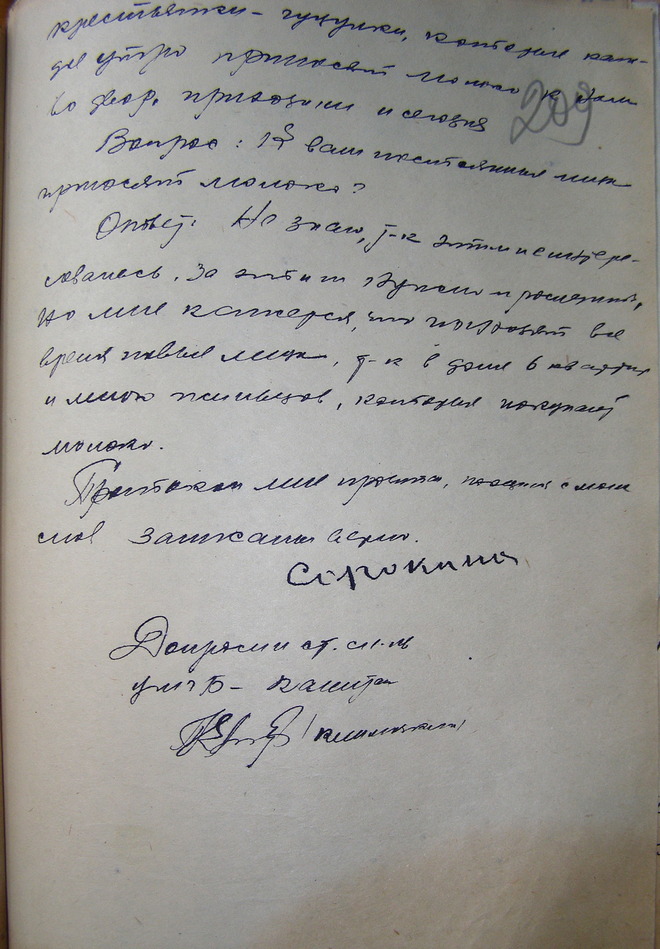 крестьянки - гуцулки, которые каж-
дое утро приносят молоко к нам
во двор, приходили и сегодня
209
Вопрос: К вам постоянные лица
приносят молоко?
Ответ: Не знаю, т-к этим не интере-
совалась. За этим
Но мне кажется, что приходят все
время новые лица, т-к в доме 6 квартир
и много жильцов, которые покупают
молоко.
Протокол мне прочитан, с моих
слов записано верно.
Сорокина
Допросил ст. сл-ль
УМГБ - капитан